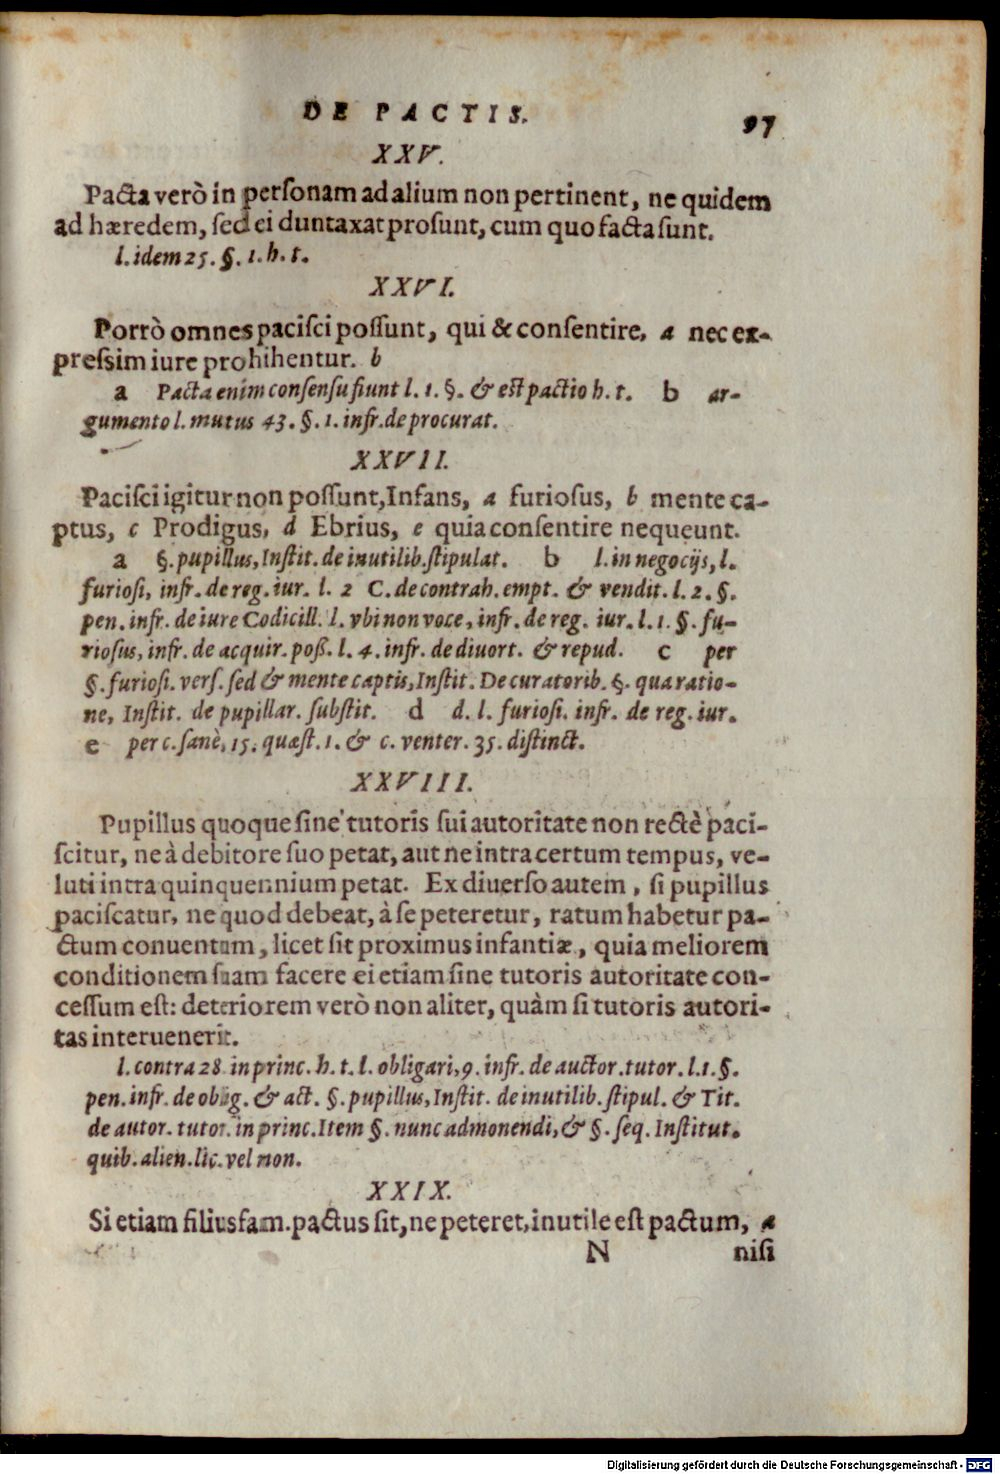 DE PACTIS. 97
XXV.
Pacta verò in personam ad alium non pertinent, ne quidem
ad hæredem, sed ei duntaxat prosunt, cum quo facta sunt.
l. idem 25. §. 1. h. t.
XXVI.
Porrò omnes pacisci possunt, qui & consentire, a nec ex-
pressim iure prohihentur. b
a Pacta enim consensu fiunt l. 1. §. & est pactio h. t. b ar-
gumento l. mutus 43. §. 1. infr. de procurat.
XXVII.
Pacisci igitur non possunt, Infans, a furiosus, b mente ca-
ptus, c Prodigus, d Ebrius, e quia consentire nequeunt.
a §. pupillus, Instit. de inutilib. stipulat. b l. in negocijs, l.
furiosi, infr. de reg. iur. l. 2 C. de contrah. empt. & vendit. l. 2. §.
pen. infr. de iure Codicill. l. vbi non voce, infr. de reg. iur. l. 1. §. fu-
riosus, infr. de acquir. poß. l. 4. infr. de diuort. & repud. c per
§. furiosi. vers. sed & mente captis, Instit. De curatorib. §. qua ratio-
ne, Instit. de pupillar. substit. d d. l. furiosi. infr. de reg. iur.
e per c. sanè, 15. quæst. 1. & c. venter. 35. distinct.
XXVIII.
Pupillus quoque sine tutoris sui autoritate non rectè paci-
scitur, ne à debitore suo petat, aut ne intra certum tempus, ve-
luti intra quinquennium petat. Ex diuerso autem, si pupillus
paciscatur, ne quod debeat, à se peteretur, ratum habetur pa-
ctum conuentum, licet sit proximus infantiæ, quia meliorem
conditionem suam facere ei etiam sine tutoris autoritate con-
cessum est: deteriorem verò non aliter, quàm si tutoris autori-
tas interuenerit.
l. contra 28 in princ. h. t. l. obligari, 9. infr. de auctor. tutor. l. 1. §.
pen. infr. de oblig. & act. §. pupillus, Instit. de inutilib. stipul. & Tit.
de autor. tutor. in princ. Item §. nunc admonendi, & §. seq. Institut.
quib. alien. lic. vel non.
XXIX.
Si etiam filiusfam. pactus sit, ne peteret, inutile est pactum, a
N nisi
Digitalisierung gefördert durch die Deutsche Forschungsgemeinschaft - DFG